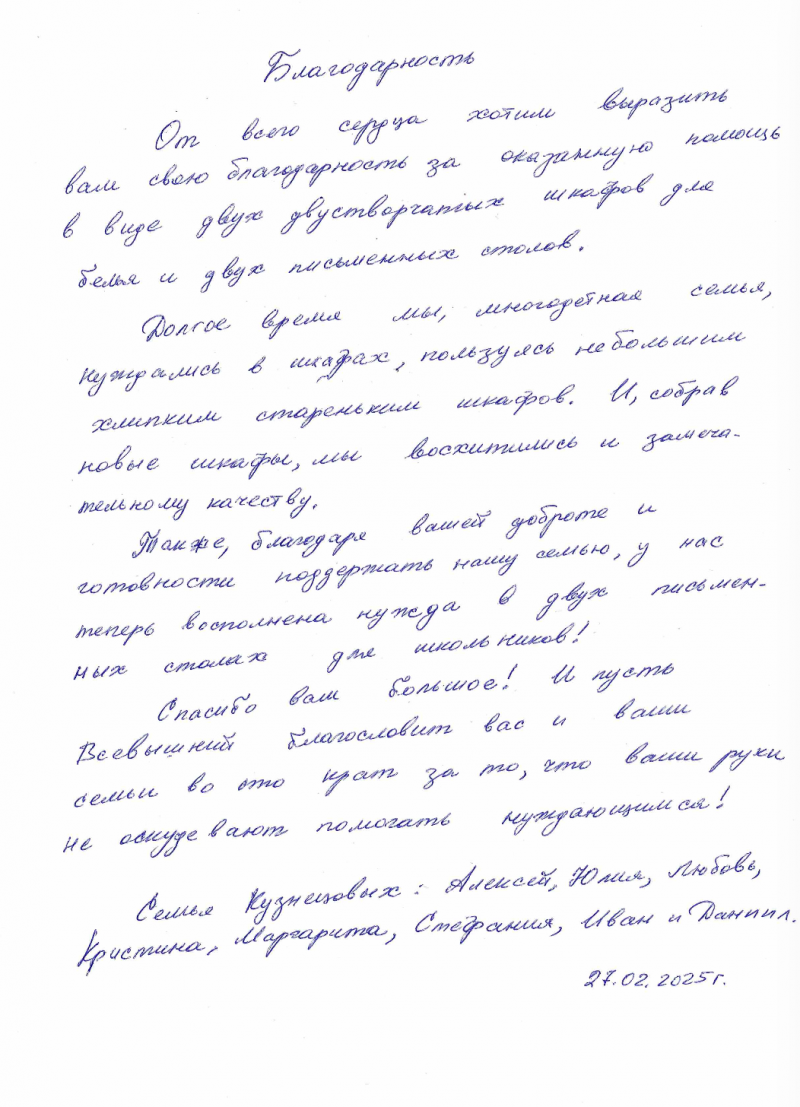 Благодарность
От всего сердца хотим выразить
вам свою благодарность за оказанную помощь
в виде двух двустворчатых шкафов для
белья и двух письменных столов.
Долгое время мы, многодетная семья,
нуждались в шкафах, пользуясь небольшим
хлипким стареньким шкафов. И, собрав
новые шкафы, мы восхитились и замеча-
тельному качеству.
Также, благодаря вашей доброте и
готовности поддержать нашу семью, у нас
теперь восполнена нужда в двух письмен-
ных столах для школьников!
Спасибо вам большое! И пусть
Всевышний благословит вас и ваши
семьи во сто крат за то, что ваши руки
не оскудевают помогать нуждающимся!
Семья Кузнецовых: Алексей, Юлия, Любовь,
Кристина, Маргарита, Стефания, Иван и Даниил.
27.02.2025г.